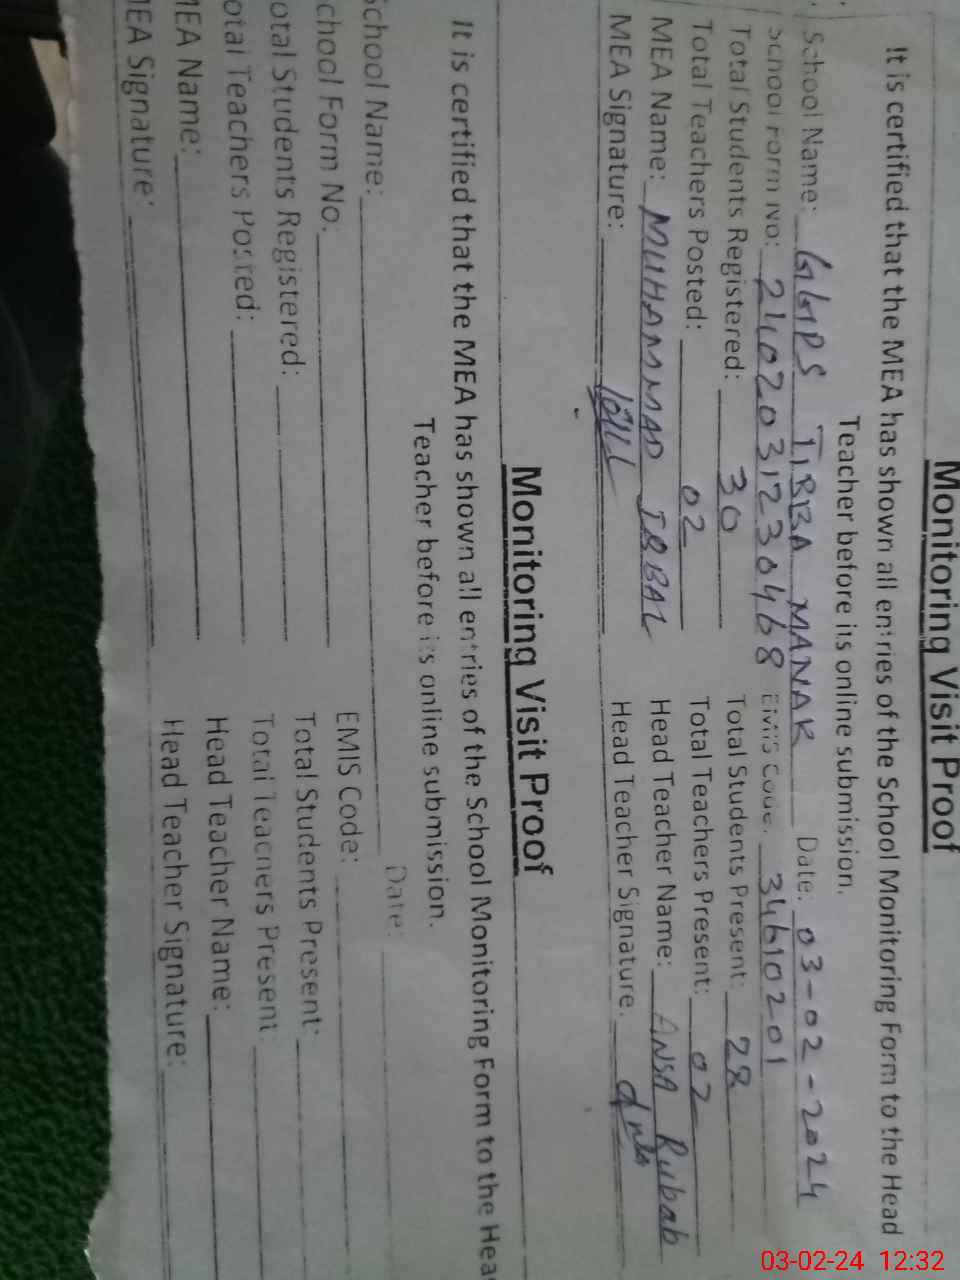 Monitoring Visit Proof
It is certified that the MEA has shown all entries of the School Monitoring Form to the Head
Teacher before its online submission.
School Name: GGPS TIBBA MANAK Date: 03-02-2024
School Form No: 2402031230468 EMIS Code: 34610201
Total Students Registered: 30 Total Students Present: 28
Total Teachers Posted: 02 Total Teachers Present: 02
MEA Name: MUHAMMAD IQBAL Head Teacher Name: ANSA Rubab
MEA Signature: Head Teacher Signature.
Monitoring Visit Proof
It is certified that the MEA has shown all entries of the School Monitoring Form to the Hea
Teacher before its online submission.
School Name: Date:
chool Form No. EMIS Code:
otal Students Registered: Total Students Present:
otal Teachers Posted: Total Teachers Present
MEA Name: Head Teacher Name:
MEA Signature: Head Teacher Signature:
03-02-24 12:32